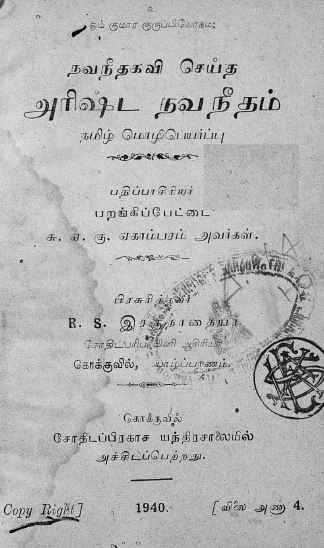 உ
ஓம் குமார குருப்பியோநம:
நவநீதகவி செய்த
அரிஷ்ட நவநீதம்
தமிழ் மொழிபெயர்ப்பு
பதிப்பாசிரியர்
பறங்கிப்பேட்டை
சு. ஏ. கு. ஏகாம்பரம் அவர்கள்.
பிரசுரித்தவர்
R. S.
கொக்குவில், யாழ்ப்பாணம்.
கொக்குவில்
சோதிடப்பிரகாச யந்திரசாலையில்
அச்சிடப்பெற்றது.
Copy Right] 1940. [விலை அணா 4.